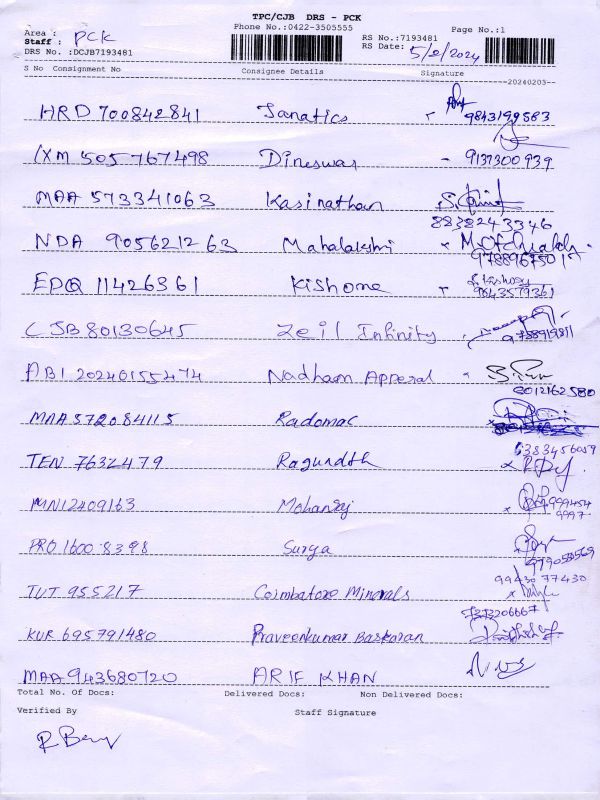 TPC/CJB DRS - PCK
Phone No.:0422-3505555
Page No.:1
Area : PCK
Staff :
RS No.:7193481
DRS No.:DCJB7193481
RS Date: 5/2/2024
S No Consignment No Consignee Details Signature
20240203
HRD 700842841 Janatics 9843199583
IXM 505767498 Dineswar - 9137300939
MAA 573341063 Kasinathan
8838243346
NDA 905621263 Mahalakshmi
9788967501
EPQ 11426361 Kishone
9843579361
CJB80130645 Zeil Infinity
ABI 20240155474 Nadham Apperal
6012162580
MAA572084115 Radomac
6383456059
TEN 7632479 Ragundth
MN12409163 Mohanraj 999454
9997
PRO 1600 8398 Surya
99430 77430
TUT 955217 Coimbatore Minerals
7373206667
KUR 695791480 Praveenkumar Baskaran
MAA943680720 ARIF KHAN
Total No. Of Docs: Delivered Docs: Non Delivered Docs:
Verified By Staff Signature